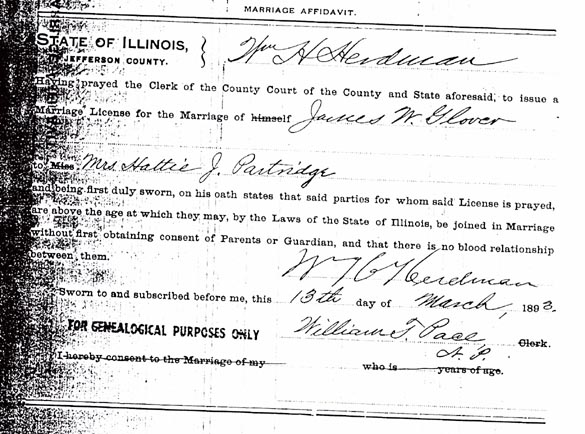 MARRIAGE AFFIDAVIT.
STATE OF ILLINOIS,
JEFFERSON COUNTY.
Wm H Herdman
Having prayed the Clerk of the County Court of the County and State aforesaid, to issue a
Marriage License for the Marriage of himself James W. Glover
to Miss Mrs Hattie J. Partridge
and being first duly sworn, on his oath states that said parties for whom said License is prayed,
are above the age at which they may, by the Laws of the State of Illinois, be joined in Marriage
without first obtaining consent of Parents or Guardian, and that there is no blood relationship
between them.
Wm H Herdman
Sworn to and subscribed before me, this 13th day of March, 1893.
William T. Pace, Clerk.
N. P.
FOR GENEALOGICAL PURPOSES ONLY
I hereby consent to the Marriage of my who is years of age.